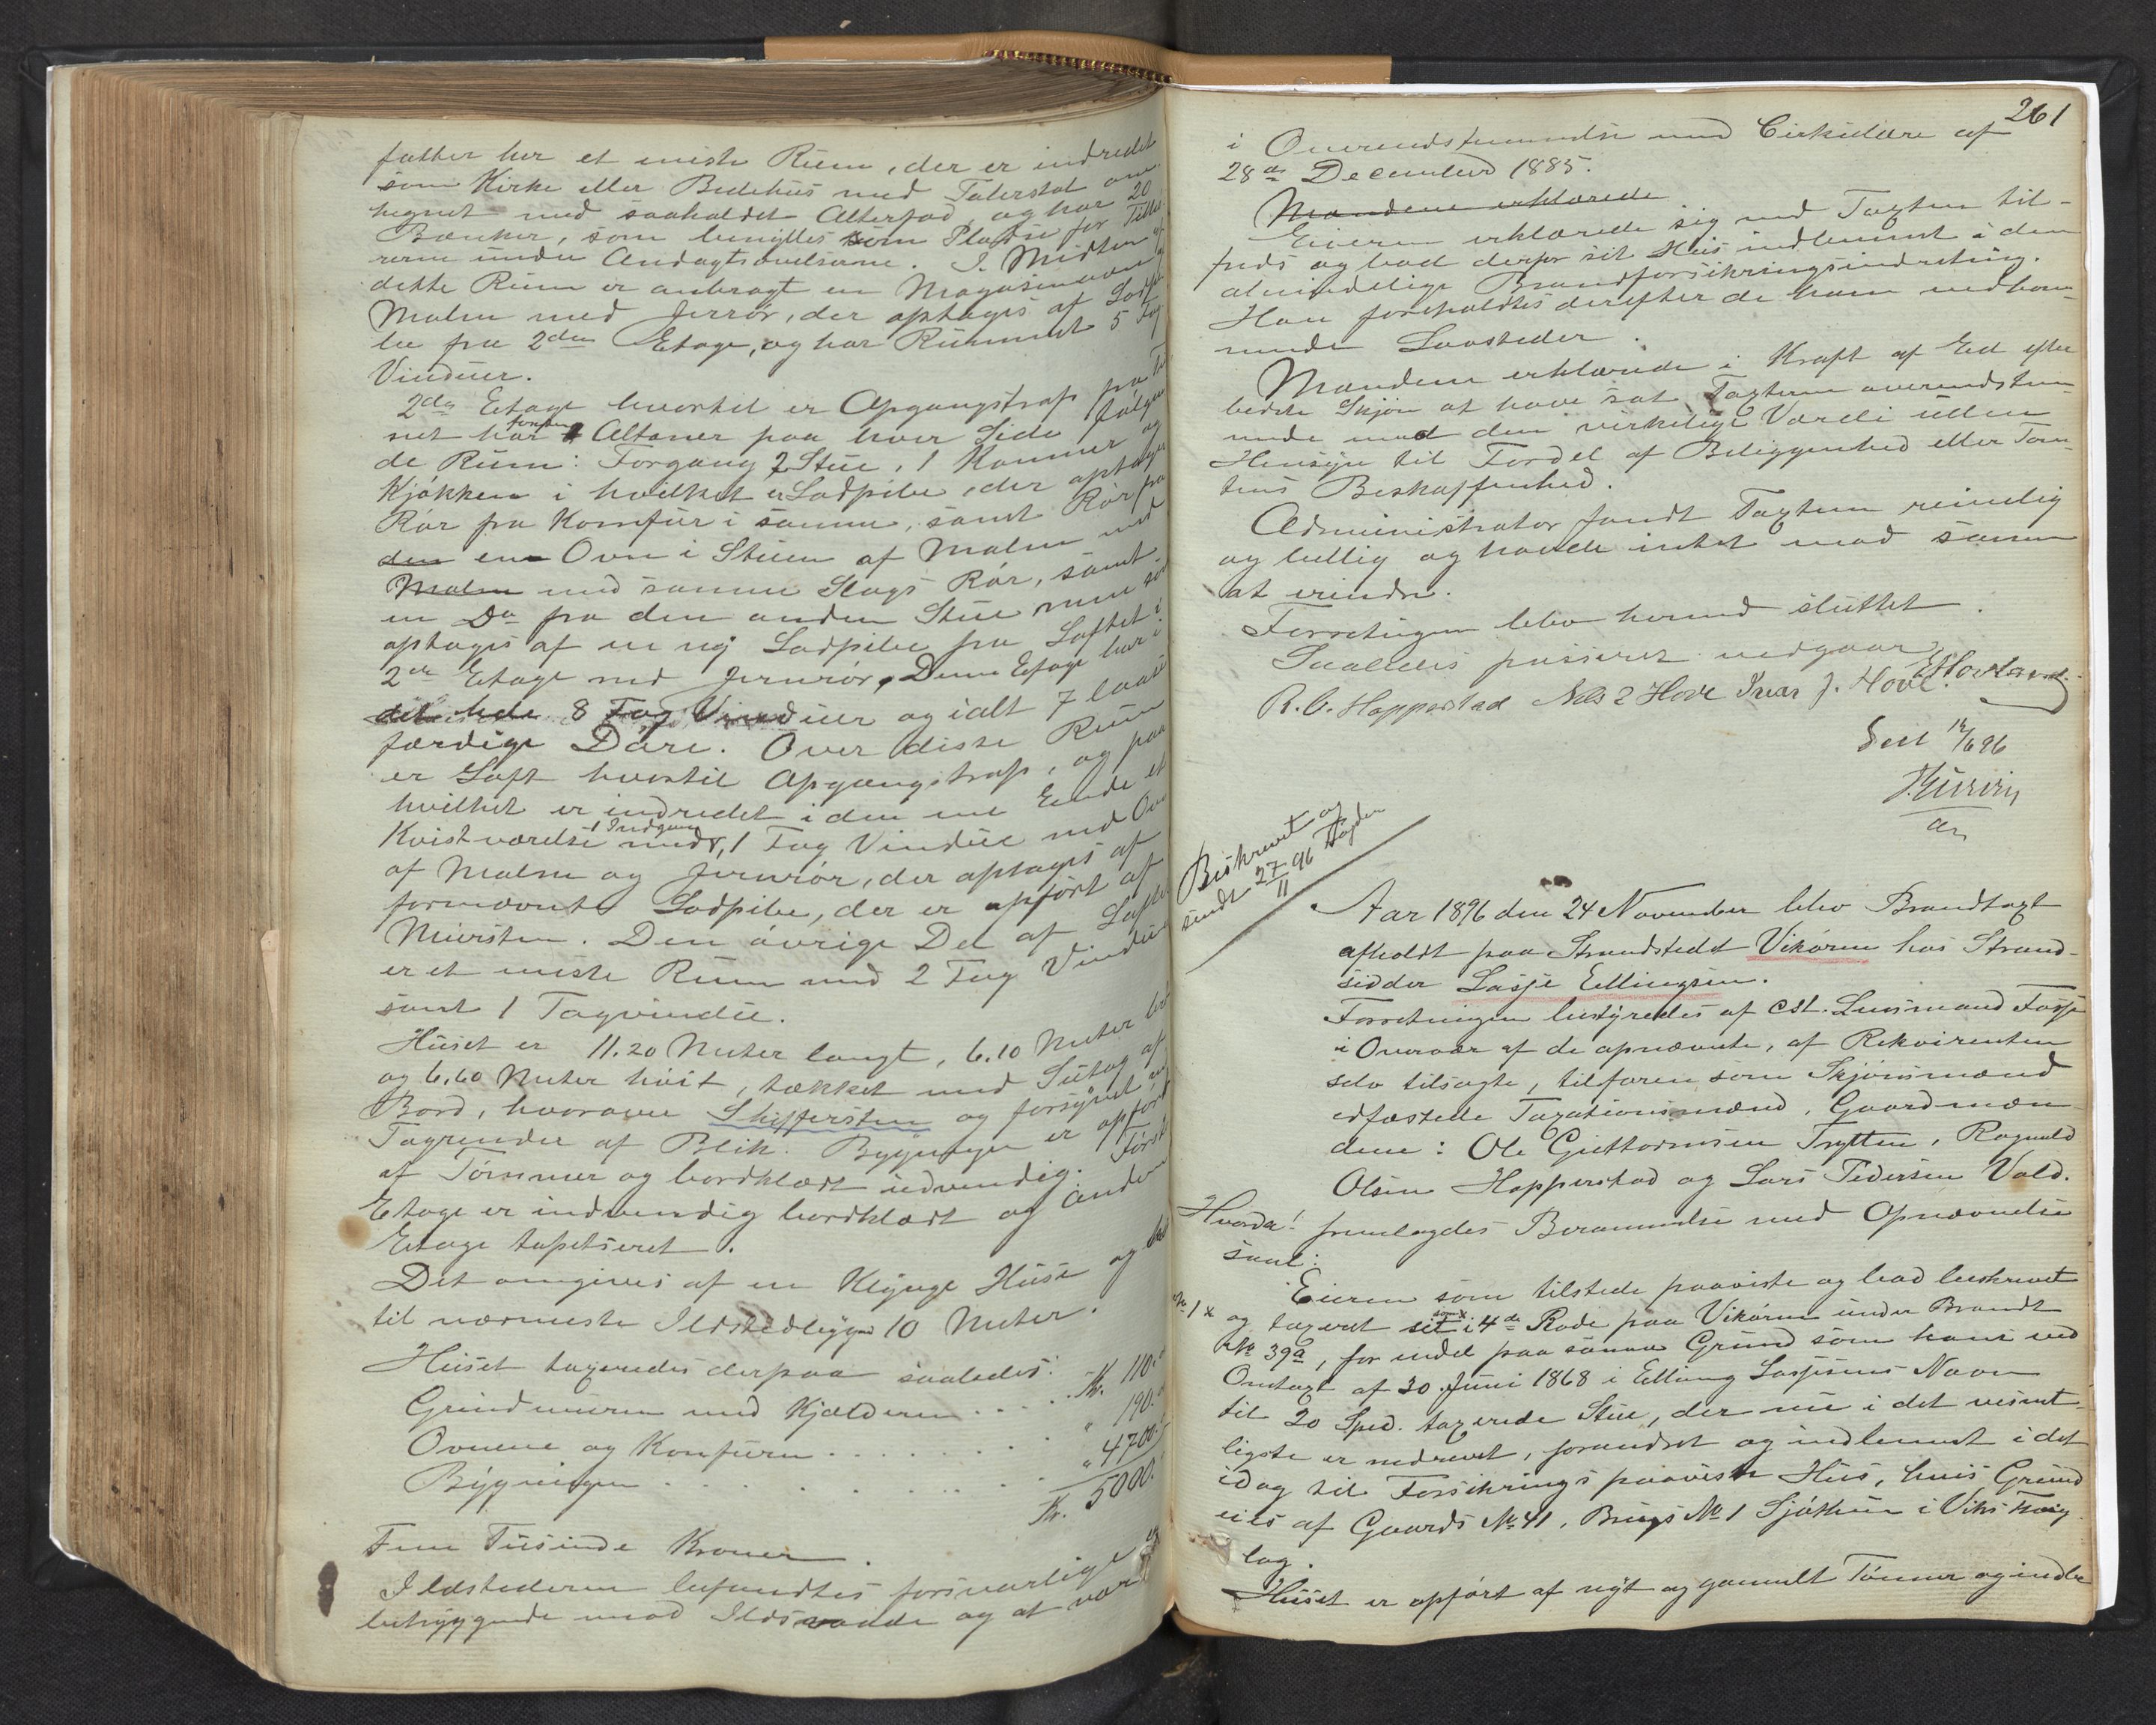 fatter her et eneste Rum, der er indredet
som Kirke eller Bedehus med Talerstol om-
hegnet med saakaldet Alterfod, og har 20
Bænker, som benyttes som Pladse for Tilhø-
rerne under Andagtsøvelserne. I Midten af
dette Rum er anbragt en Magasinovn af
Malm med Jernrør, der optages af Lodpi-
be fra 2den Etage, og har Rummet 5 Fag
Vinduer.
2den Etage hvortil er Opgangstrap fra Tu-
net har foruden Altaner paa hver Side følgen
de Rum: Forgang, 2 Stue, 1 Kammer og
Kjøkken i hvilket er Lodpibe, der optager
Rør fra Komfur i samme, samt Rør fra
den en Ovn i Stuen af Malm med
Malm med samme Slags Rør, samt
en Do fra den anden Stue men som
optages af en ny Lodpibe fra Loftet i
2den Etage med Jernrør, Denne Etage har i
det hele 8 Fag Vinduer og ialt 7 laas-
færdige Døre. Over disse Rum
er Loft hvortil Opgangstrap, og paa
hvilket er indredet i den ene Ende et
Kvistværelse med 1 Indgang, 1 Fag Vindue med Ovn
af Malm og Jernrør, der optages af
fornævnte Lodpibe, der er opført af
Mursten. Den øvrige Del af Loftet
er et eneste Rum med 2 Fag Vinduer
samt 1 Tagvindue.
Huset er 11.20 Meter langt, 6.10 Meter bre
og 6.60 Meter høit, tækket med Sutag af
Bord, hvorover Skiffersten og forsynet m
Tagrender af Blik. Bygningen er opført
af Tømmer og bordklædt udvendig. Første
Etage er indvendig bordklædt og anden
Etage tapetseret.
Det omgives af en Klynge Huse og
til nærmeste Ildstedbygn 10 Meter.
Huset taxeredes derpaa saaledes:
Grundmuren med Kjælderen .... Kr. 110.
Ovnene og Komfuren ........ " 190.
Bygningen ........ " 4700.
Kr. 5000.
Fem Tusinde Kroner.
Ildstederne befandtes forsvarlige
betryggende mod Ildsvaade og at var
261
i Overensstemmelse med Cirkulære af
28de December 1885.
Mændene erklærede
Eieren erklærede sig med Taxten til-
freds og bad derfor sit Hus indlemmet i den
almindelige Brandforsikringsindretning.
Han foreholdtes derefter de ham vedkom-
mende Lovsteder.
Mændene erklærede i Kraft af Ed efter
bedste Skjøn at have sat Taxterne overensstem-
mende med den virkelige Værdi uden
Hensyn til Fordel af Beliggenhed eller Tom-
tens Beskaffenhed.
Administrator fandt Taxterne rimelig
og billig og havde intet mod samme
at erindre.
Forretningen blev hermed sluttet.
Saaledes passeret vedgaar,
R. O. Hopperstad Nils I Hove Ivar J. Hove. E Hovland
Seet 12/6 96
Beskrevet og
sendt 27/11 96 Fogden
Aar 1896 den 24 November blev Brandtaxt
afholdt paa Strandstedet Vikøren hos Strand-
sidder Lasse Ellingsen.
Forretningen bestyredes af cst. Lensmand Fosse
i Overvær af de opnævnte, af Rekvirenten
selv tilsagte, tilforen som Skjønsmænd
edfæstede Taxationsmænd, Gaardmæn-
dene: Ole Guttormsen Tryten, Ragnald
Olsen Hopperstad og Lars Pedersen Vold.
Hvorda! fremlagdes Berammelse med Opnævnelse
saal:
Eieren som tilstede paaviste og bad beskrevet
No 1 x og taxeret sit som x i 4de Rode paa Vikøren under Brandt
No 39a, for endel paa samme Grund som hans ved
Omtaxt af 30 Juni 1868 i Elling Lassesens Navn
til 20 Spd. taxerede Stue, der nu i det vesent-
ligste er nedrevet, forandret og indlemmet i det
idag til Forsikring paaviste Hus, hvis Grund
eies af Gaards No 41, Brugs No 1 Sjøtun i Viks Thing-
lag.
Huset er opført af nyt og gammelt Tømmer og inde